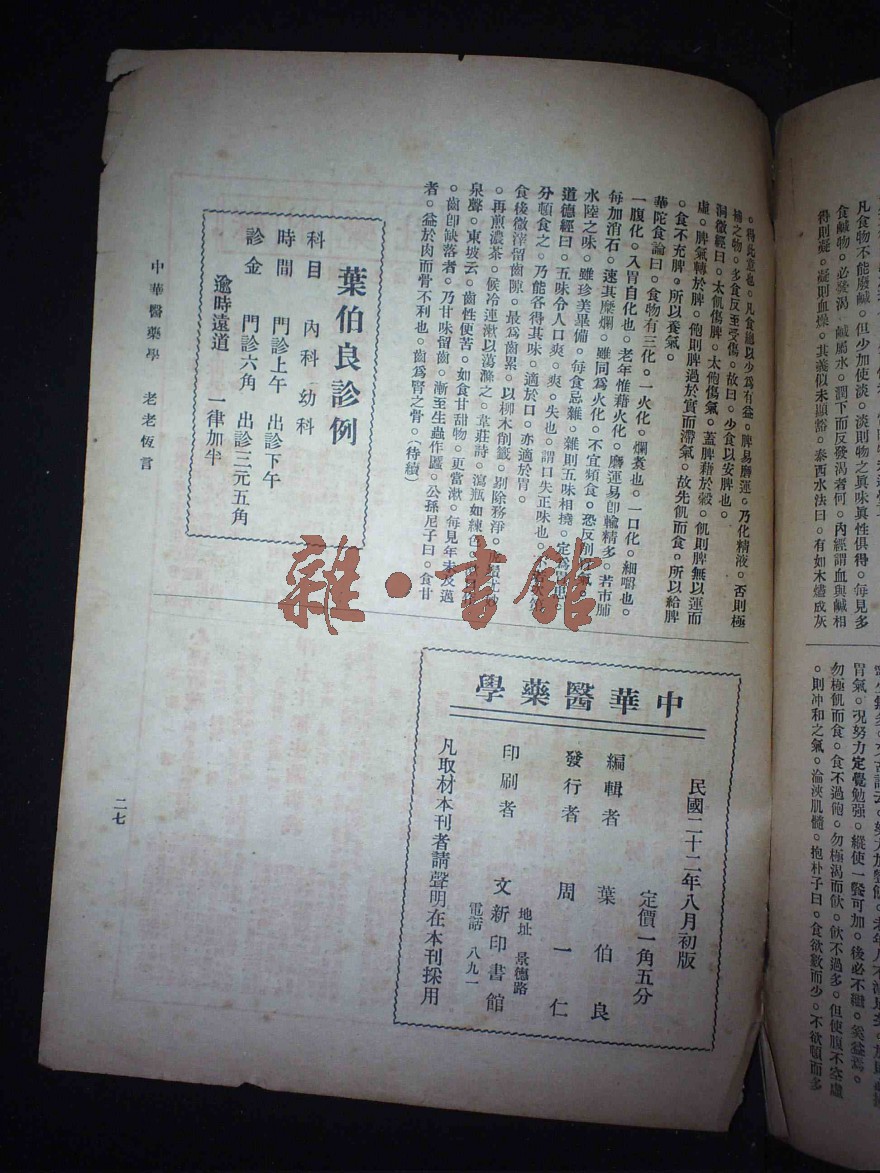 得則凝。凝則血燥。其義似未顯豁。泰西水法曰。有如木燼成灰
食鹹物。必發渴 鹹屬水。潤下而反發渴者何。內經謂血與鹹相
凡食物不能廢鹹。但少加使淡。淡則物之眞味眞性俱得。每見多
。則冲和之氣。淪浹肌髓。抱朴子曰。食欲數而少。不欲頓而多
勿極飢而食。食不過飽。勿極渴而飲。飲不過多。但使腹不空虛
胃氣。况努力定覺勉强。縱使一餐可加。後必不繼。奚益焉。
。得此意也。凡食總以少爲有益。脾易磨運。乃化精液。否則極
補之物。多食反至受傷。故曰。少食以安脾也。
洞微經曰。太飢傷脾。太飽傷氣。蓋脾藉於穀。飢則脾無以運而
虛。脾氣轉於脾。飽則脾過於實而滯氣。故先飢而食。所以給脾
。食不充脾。所以養氣。
華陀食論曰。食物有三化。一火化。爛煑也。一口化。細嚼也。
一腹化。入胃自化也。老年惟藉火化。磨運易卽輸精多。若市脯
每加消石。速其糜爛。雖同爲火化。不宜頻食。恐反削
水陸之味。雖珍美畢備。每食忌雜。雜則五味相撓。定爲
道德經曰。五味令人口爽。爽。失也。謂口失正味也。
分頓食之。乃能各得其味。適於口。亦適於胃。
食後微滓留齒隙。最爲齒累。以柳木削籤。剔除務淨。
。再煎濃茶。候冷連漱以蕩滌之。韋莊詩。瀉瓶如練色。
泉聲。東坡云。齒性便苦。如食甘甜物。更當漱。每見年未及邁
。齒卽缺落者。乃甘味留齒。漸至生蟲作䘌。公孫尼子曰。食甘
者。益於肉而骨不利也。齒爲腎之骨。(待續)
葉伯良診例
科目 內科 幼科
時間 門診上午 出診下午
診金 門診六角 出診三元五角
逾時遠道 一律加半
中華醫藥學 老老恆言
二七
中華醫藥學
民國二十二年八月初版
定價一角五分
編輯者 葉伯良
發行者 周一仁
印刷者 文新印書館
地址 景德路
電話 八九一
凡取材本刊者請聲明在本刊採用
雜·書館